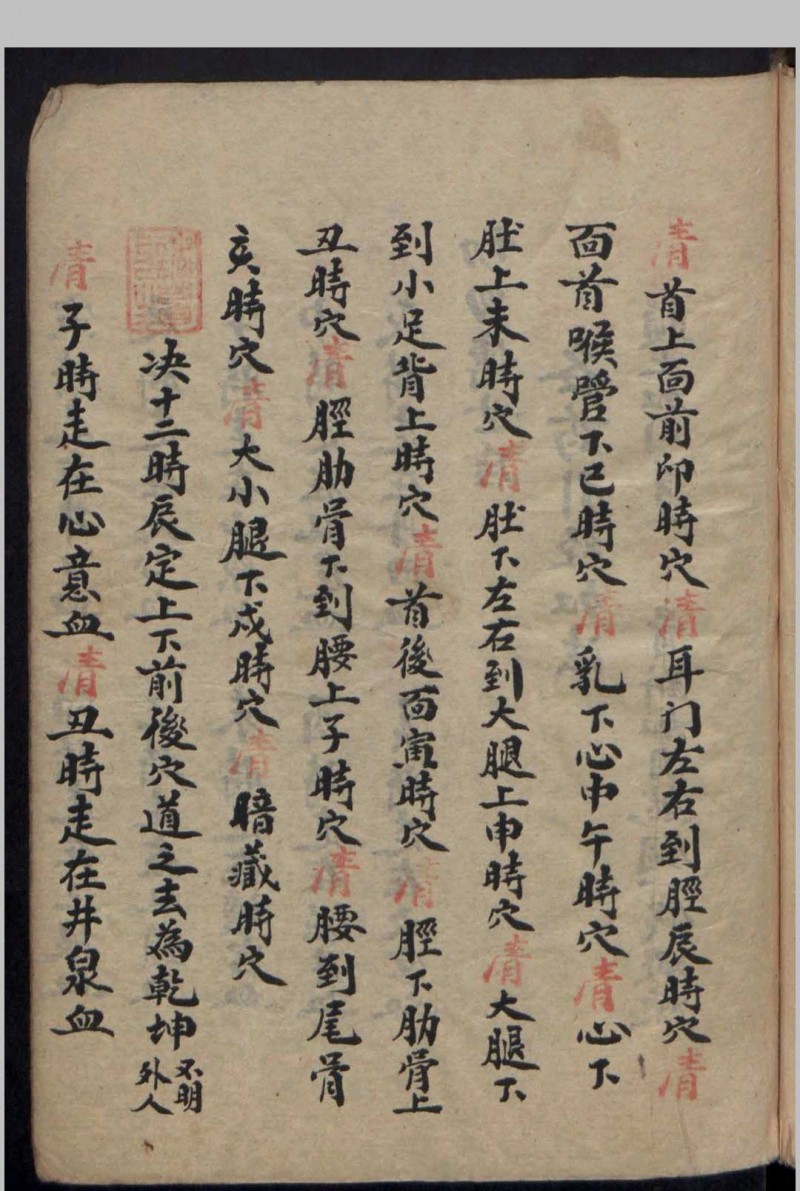 清首上面前卯時穴清耳门左右到脛辰時穴清
面首喉管下已時穴清乳下心中午時穴清心下
肚上未時穴清肚下左右到大腿上申時穴清大腿下
到小足背上時穴清首後面寅時穴清脛下肋骨上
丑時穴清脛肋骨下到腰上子時穴清腰到尾骨
亥時穴清大小腿下戍時穴清暗藏時穴
决十二時辰定上下前後穴道之去為乾坤不明外人
清子時走在心意血清丑時走在井泉血